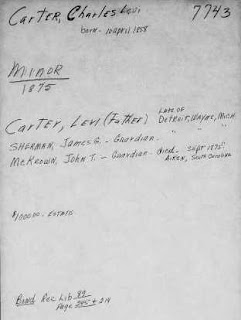 Carter, Charles Levi 7743
born - 10 April 1858
Minor
1875
Carter, Levi (Father) Late of Detroit, Wayne, Mich.
Sherman, James G. - Guardian - " " "
McKeown, John T. - Guardian - died - Sept 1875
Aiken, South Carolina
Estate
Bond Rec Lib 89
Page 245 + 214